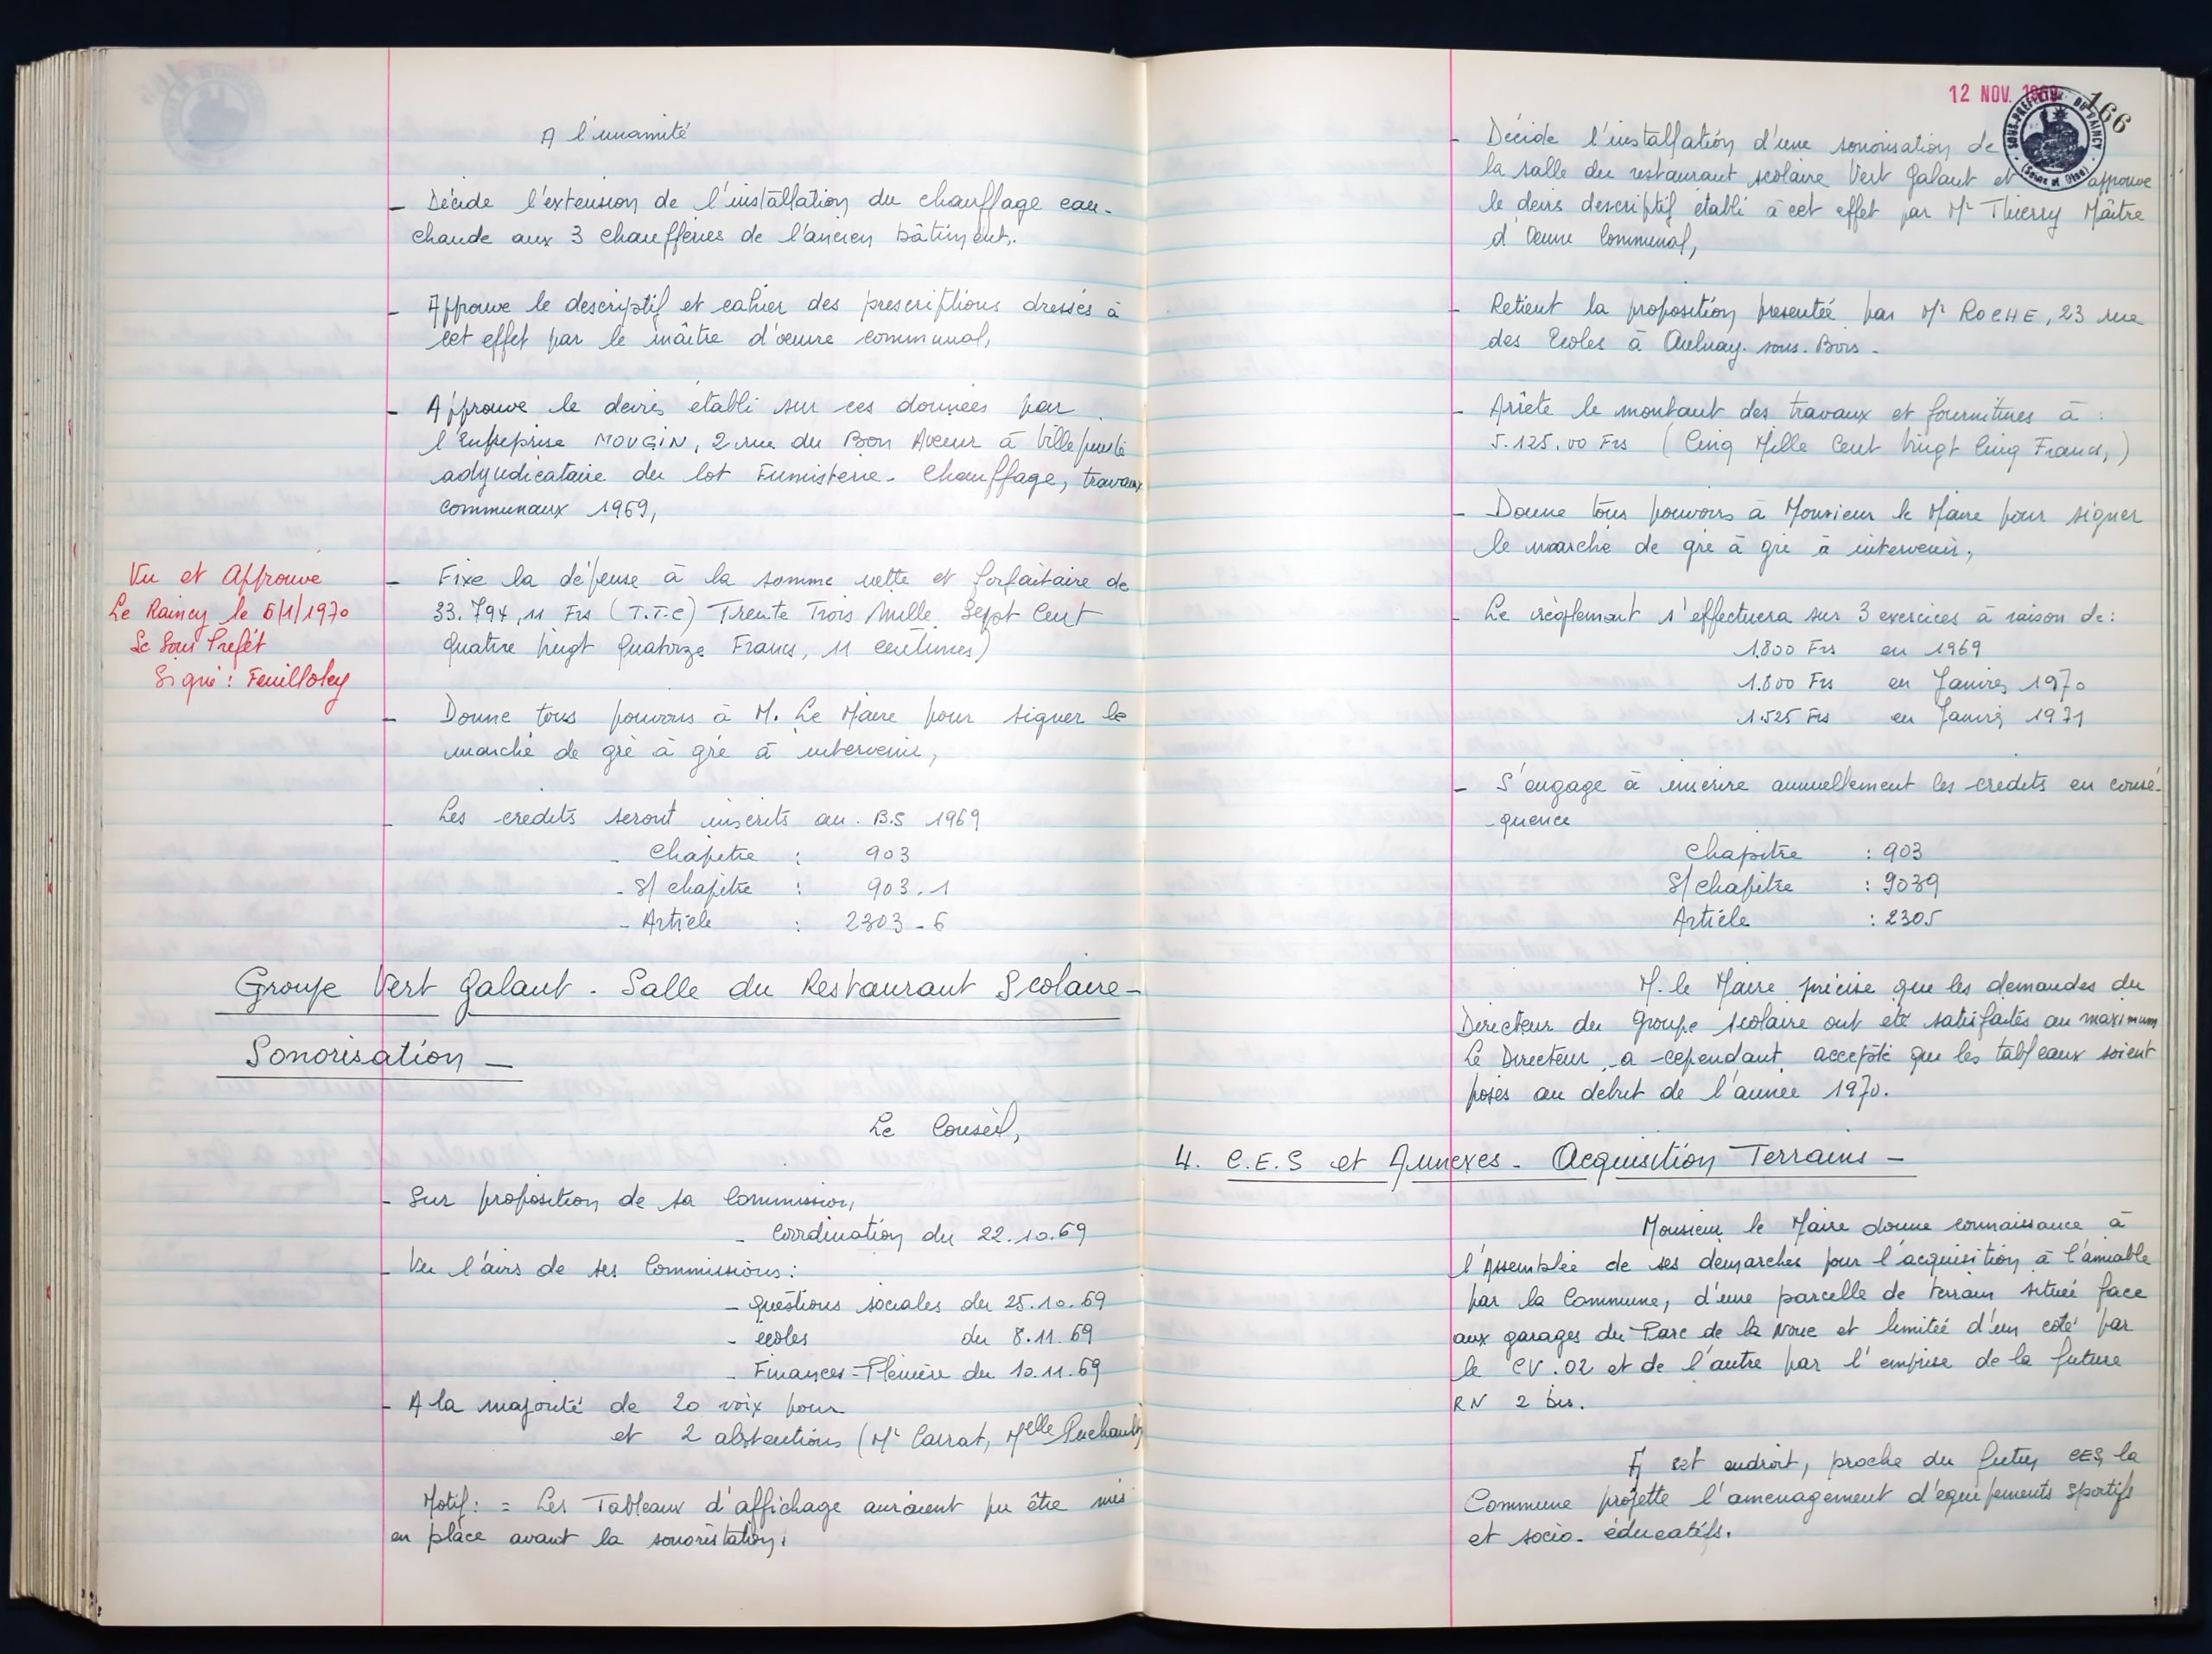 A l'unamité
- Décide l'extension de l'installation du chauffage eau-
chaude aux 3 chaufferies de l'ancien bâtiment.
- Approuve le descriptif et cahier des prescriptions dressés à
cet effet par le maître d'œuvre communal,
- Approuve le devis établi sur ces données par
l'Entreprise MOUGIN, 2 rue du Bon Accueur à Villepinte
adjudicataire du lot Fumisterie - Chauffage, travaux
communaux 1969,
Vu et Approuvé
Le Raincy le 6/1/1970
Le Sous Préfet
Signé : Feuilloley
- Fixe la dépense à la somme nette et forfaitaire de
33.794,11 Frs (T.T.C) Trente Trois Mille Sept Cent
Quatre Vingt Quatorze Francs, 11 centimes)
- Donne tous pouvoirs à M. Le Maire pour signer le
marché de gré à gré à intervenir,
- Les crédits seront inscrits au B.S 1969
- Chapitre : 903
- S/ chapitre : 903.1
- Article : 2303-6
Groupe Vert Galant - Salle du Restaurant Scolaire -
Sonorisation -
Le Conseil,
- Sur proposition de sa Commission,
- Coordination du 22.10.69
- Vu l'avis de ses Commissions :
- questions sociales du 25.10.69
- écoles du 8.11.69
- Finances-Plénière du 10.11.69
- A la majorité de 20 voix pour
et 2 abstentions (Mr Carrat, Melle Puchault)
Motif : = Les Tableaux d'affichage auraient pu être mis
en place avant la sonorisation.
12 NOV. 1969
166
SOUS-PRÉFECTURE DU RAINCY
(Seine et Oise)
- Décide l'installation d'une sonorisation de
la salle du restaurant scolaire Vert Galant et approuve
le devis descriptif établi à cet effet par Mr Thierry Maître
d'Oeuvre Communal,
- Retient la proposition presentée par Mr ROCHE, 23 rue
des Ecoles à Aulnay-sous-Bois -
- Arrête le montant des travaux et fournitures à :
5.125,00 Frs (Cinq Mille Cent Vingt Cinq Francs,)
- Donne tous pouvoirs à Monsieur le Maire pour signer
le marché de gré à gré à intervenir,
- Le règlement s'effectuera sur 3 exercices à raison de :
1.800 Frs en 1969
1.800 Frs en Janvier 1970
1.525 Frs en Janvier 1971
- S'engage à inscrire annuellement les credits en consé-
-quence
Chapitre : 903
S/ chapitre : 9039
Article : 2305
M. le Maire précise que les demandes du
Directeur du Groupe scolaire ont été satisfaites au maximum
Le Directeur a cependant accepté que les tableaux soient
posés au debut de l'année 1970.
4. C.E.S et Annexes - Acquisition Terrains -
Monsieur le Maire donne connaissance à
l'Assemblée de ses démarches pour l'acquisition à l'amiable
par la Commune, d'une parcelle de terrain située face
aux garages du Parc de la Noue et limitée d'un coté par
le CV.02 et de l'autre par l'emprise de la future
RN 2 bis.
A cet endroit, proche du futur CES, la
Commune projette l'amenagement d'equipements sportifs
et socio-éducatifs.